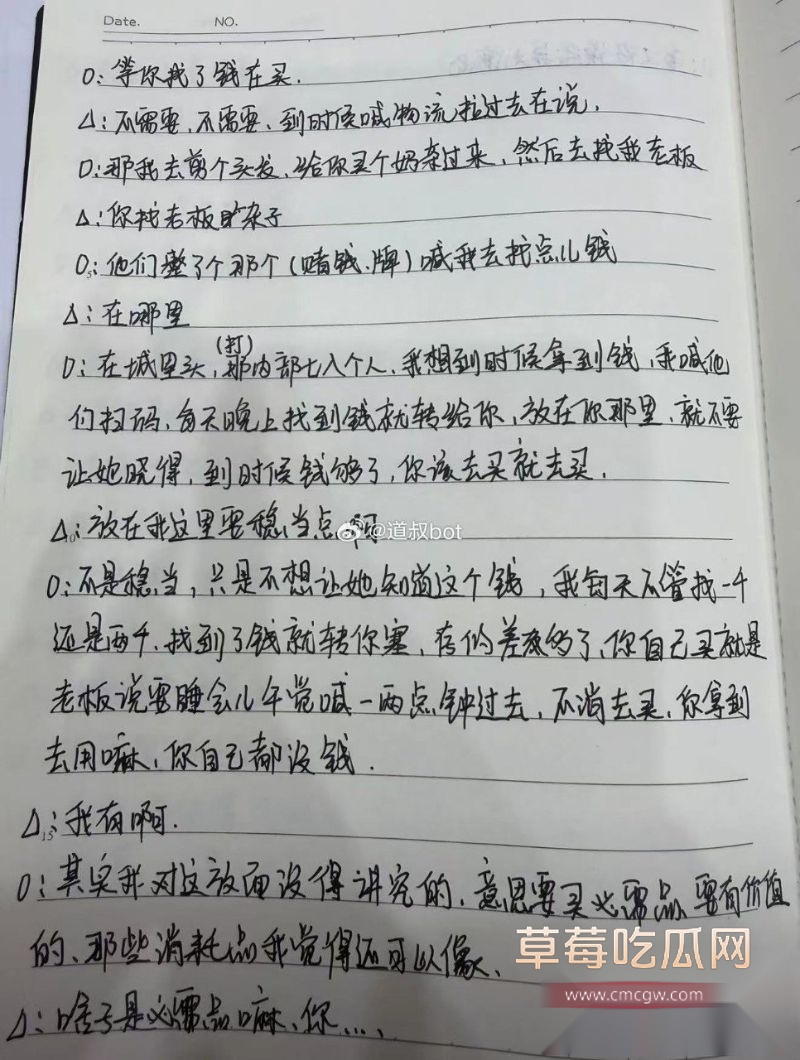 Date.
NO.
O:等你找了钱在买.
Δ:不需要、不需要、到时候喊物流拉过去在说.
O:那我去剪个头发、给你买个奶茶过来、然后去找我老板
Δ:你找老板 杂子
O:他们整了个那个(赌钱、牌)喊我去找点儿钱
Δ:在哪里
(打)
O:在城里头,那内部七八个人、我想到时候拿到钱,我喊他
们扫码、每天晚上找到钱就转给你、放在你那里、就不要
让她晓得,到时候钱够了,你该去买就去买.
Δ:放在我这里要稳当点 啊
@道叔bot
O:不是稳当,只是不想让她知道这个钱,我每天不管找一千
还是两千、找到了钱就转你 ,存的差 的了、你自己买就是
老板说要睡会儿午觉喊一两点钟过去、不消去买、你拿到
去用嘛、你自己都没钱.
Δ:我有啊.
15
O:其实我对这放面没得讲究的、意思要买必需品 要有价值
的、那些消耗品我觉得还可以像、
Δ:啥子是必需品嘛、你....
草莓吃瓜网
www.cmcgw.com